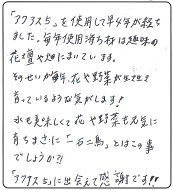 「アクアス5」を使用して早4年が経ち
ました。毎年使用済ろ材は趣味の
花壇や畑にまいています。
そのせいか毎年、花や野菜が生き生き
育っているような気がします!
水も美味しくて花や野菜も元気に
育ちまさに「一石二鳥」とはこの事
でしょうか?!
「アクアス5」に出会えて感謝です!!